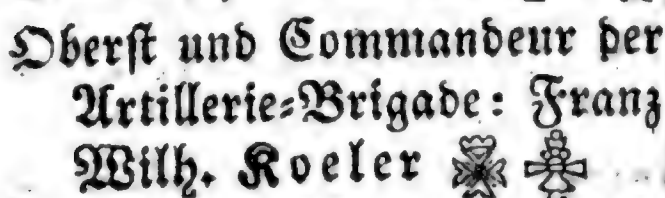 Oberst und Commandeur der
Artillerie-Brigade: Franz
Wilh. Koeler